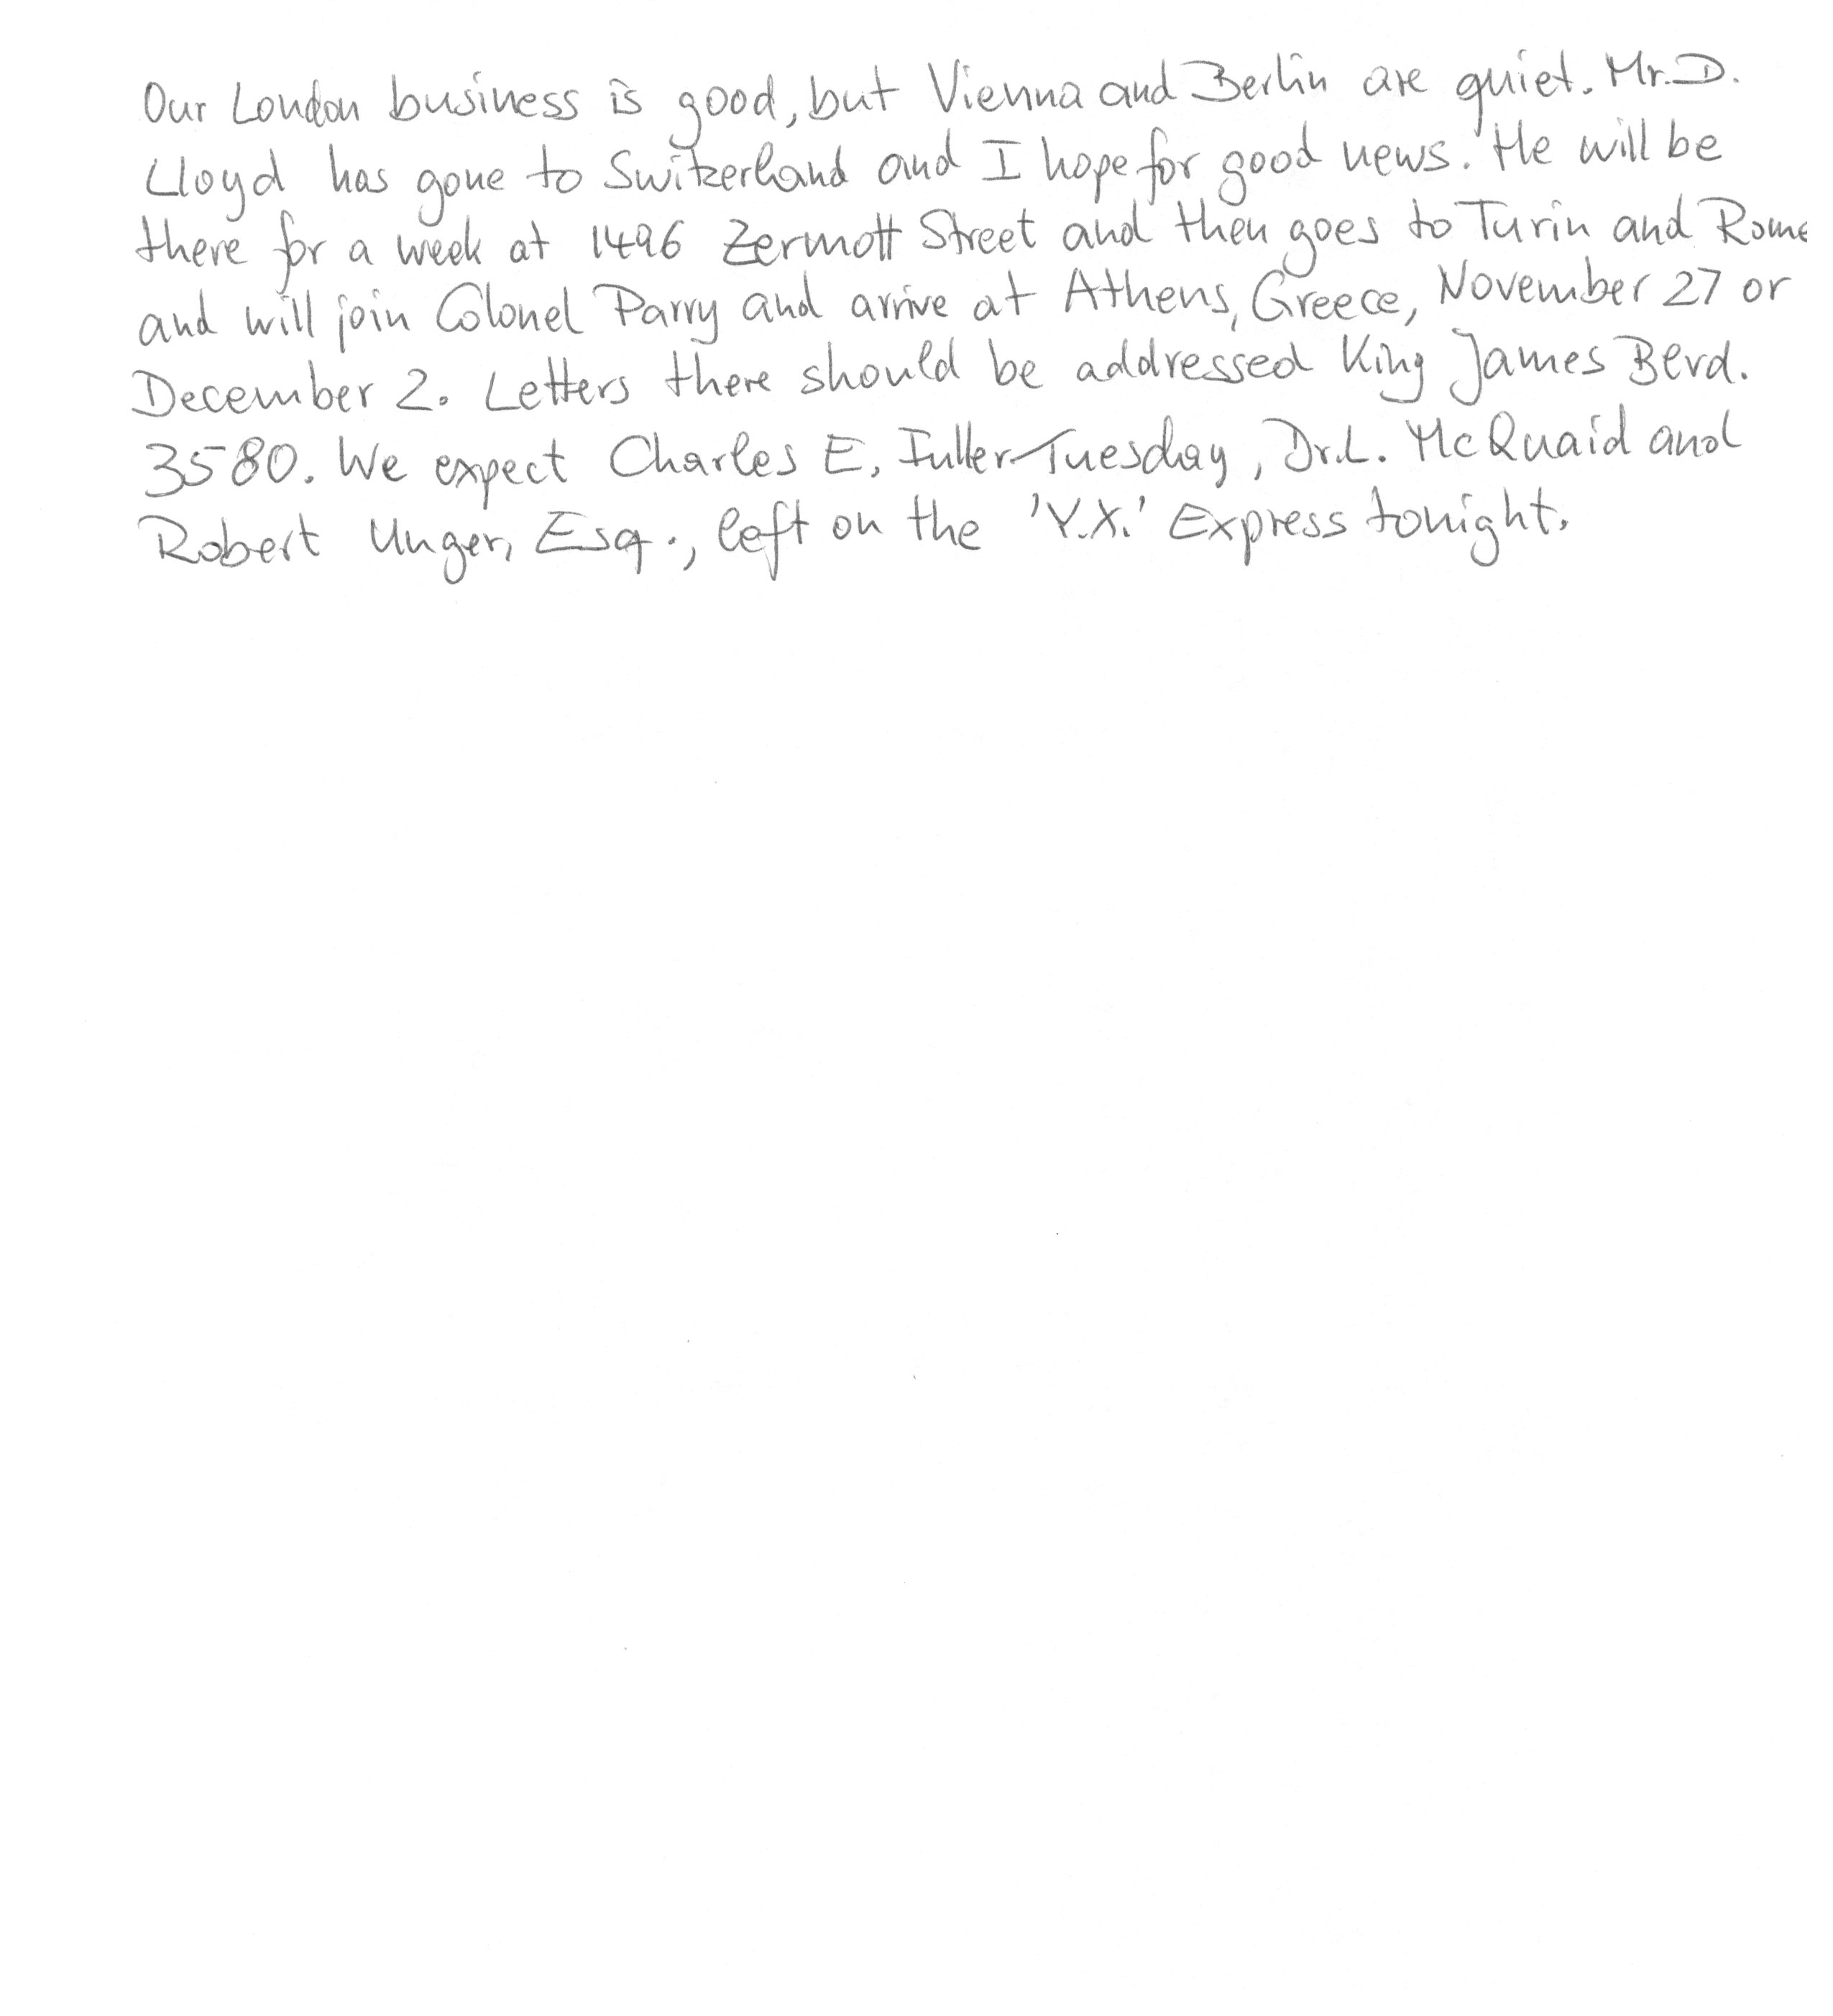 Our London business is good, but Vienna and Berlin are quiet. Mr. D.
Lloyd has gone to Switzerland and I hope for good news. He will be
there for a week at 1496 Zermott Street and then goes to Turin and Rome
and will join Colonel Parry and arrive at Athens, Greece, November 27 or
December 2. Letters there should be addressed King James Blvd.
3580. We expect Charles E. Fuller Tuesday, Dr. L. McQuaid and
Robert Unger, Esq., left on the 'Y.X.' Express tonight.